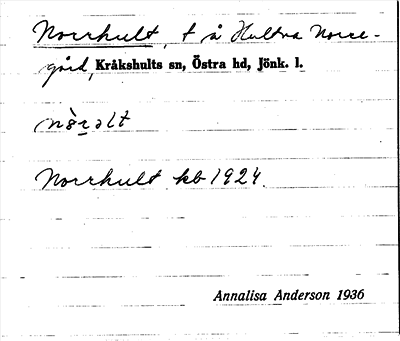 Norrhult, t å Hultna Norre-
gård, Kråkshults sn, Östra hd, Jönk. l.
Norrhult kb 1924.
Annalisa Anderson 1936